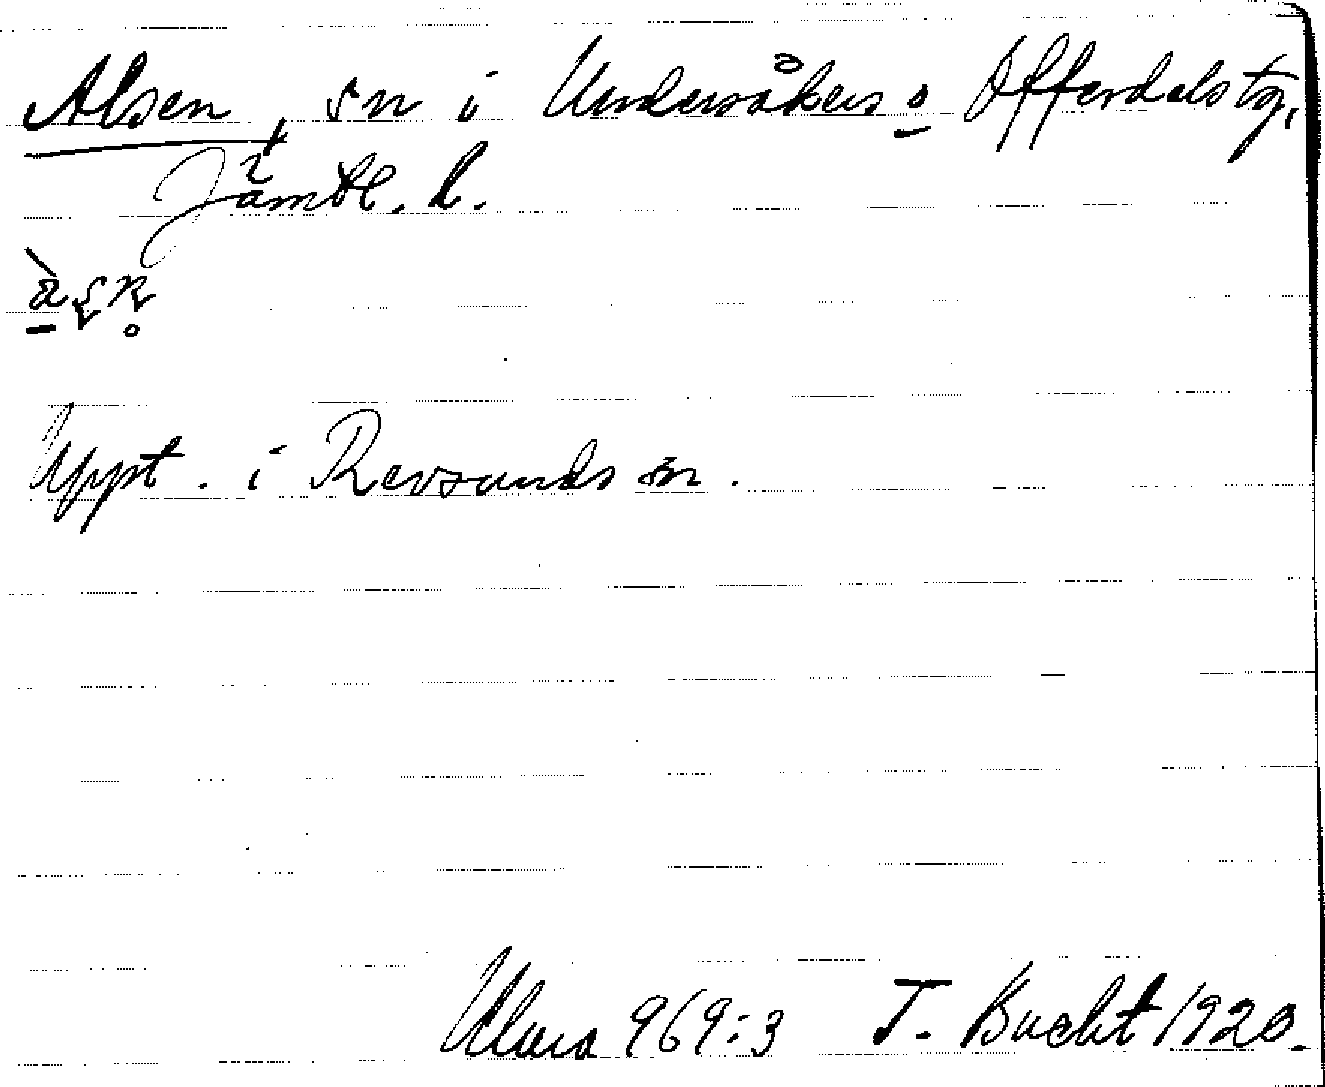 Alsen, sn i Undersåkers o Offerdals tg,
Jämtl. l.
Uppt. i Revsunds sn.
Ulma 969:3 T. Bucht 1920.